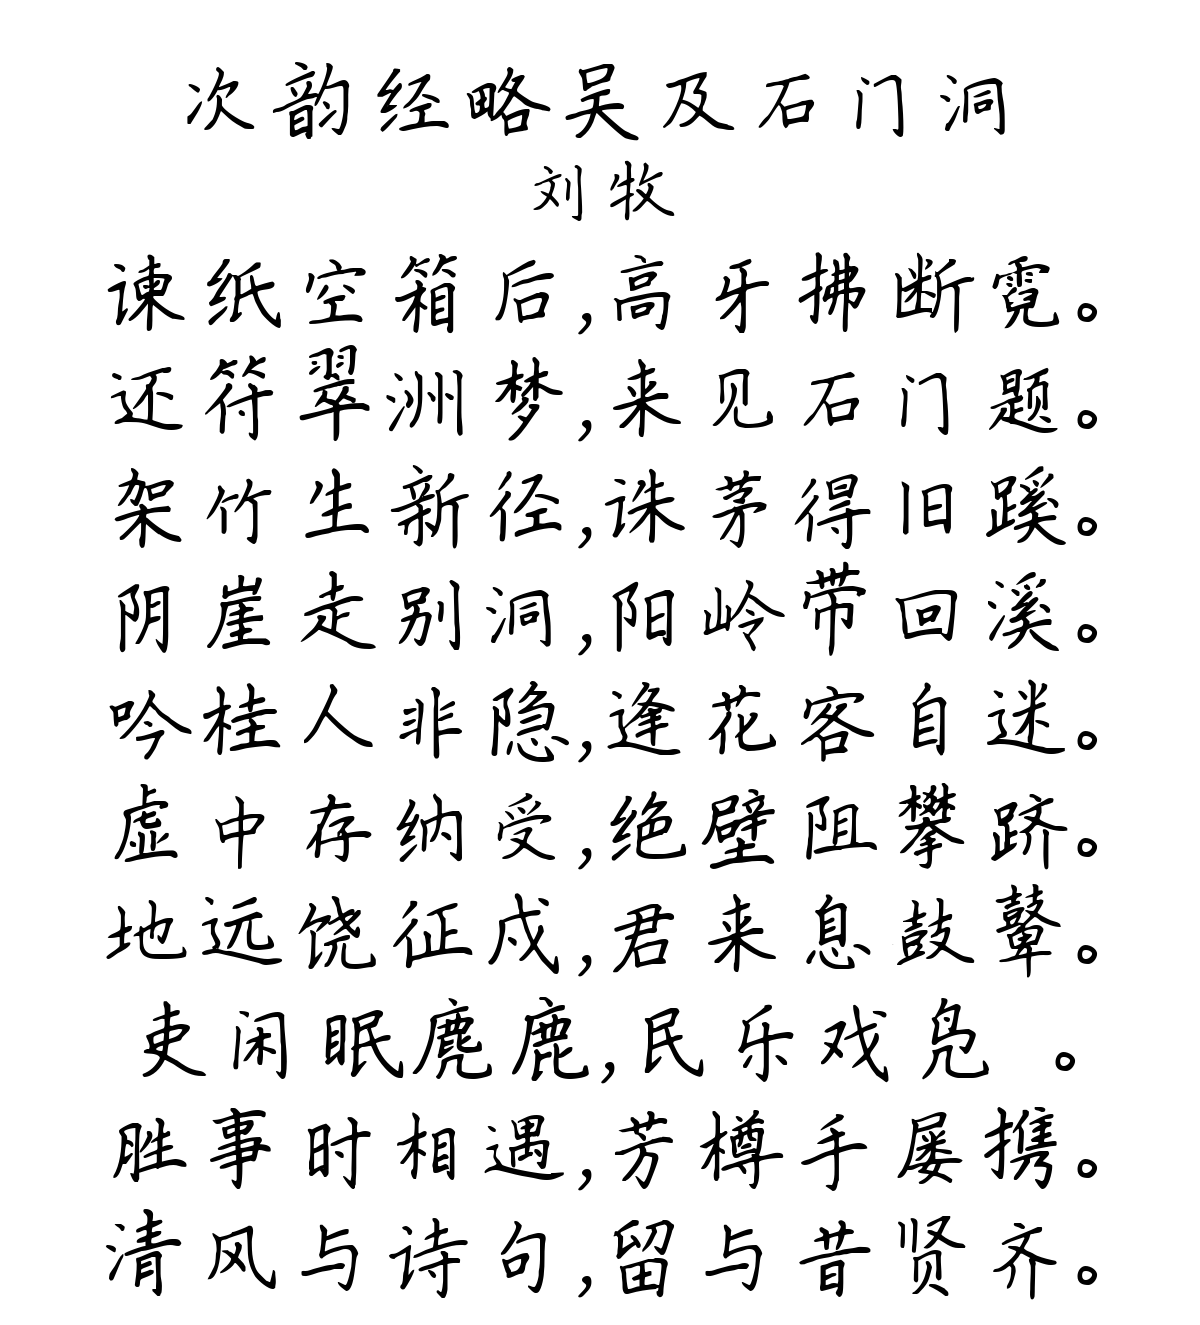 次韵经略吴及石门洞
刘牧
谏纸空箱后,高牙拂断霓。
还符翠洲梦,来见石门题。
架竹生新径,诛茅得旧蹊。
阴崖走别洞,阳岭带回溪。
吟桂人非隐,逢花客自迷。
虚中存纳受,绝壁阻攀跻。
地远饶征戍,君来息鼓鼙。
吏闲眠麂鹿,民乐戏凫 。
胜事时相遇,芳樽手屡携。
清风与诗句,留与昔贤齐。